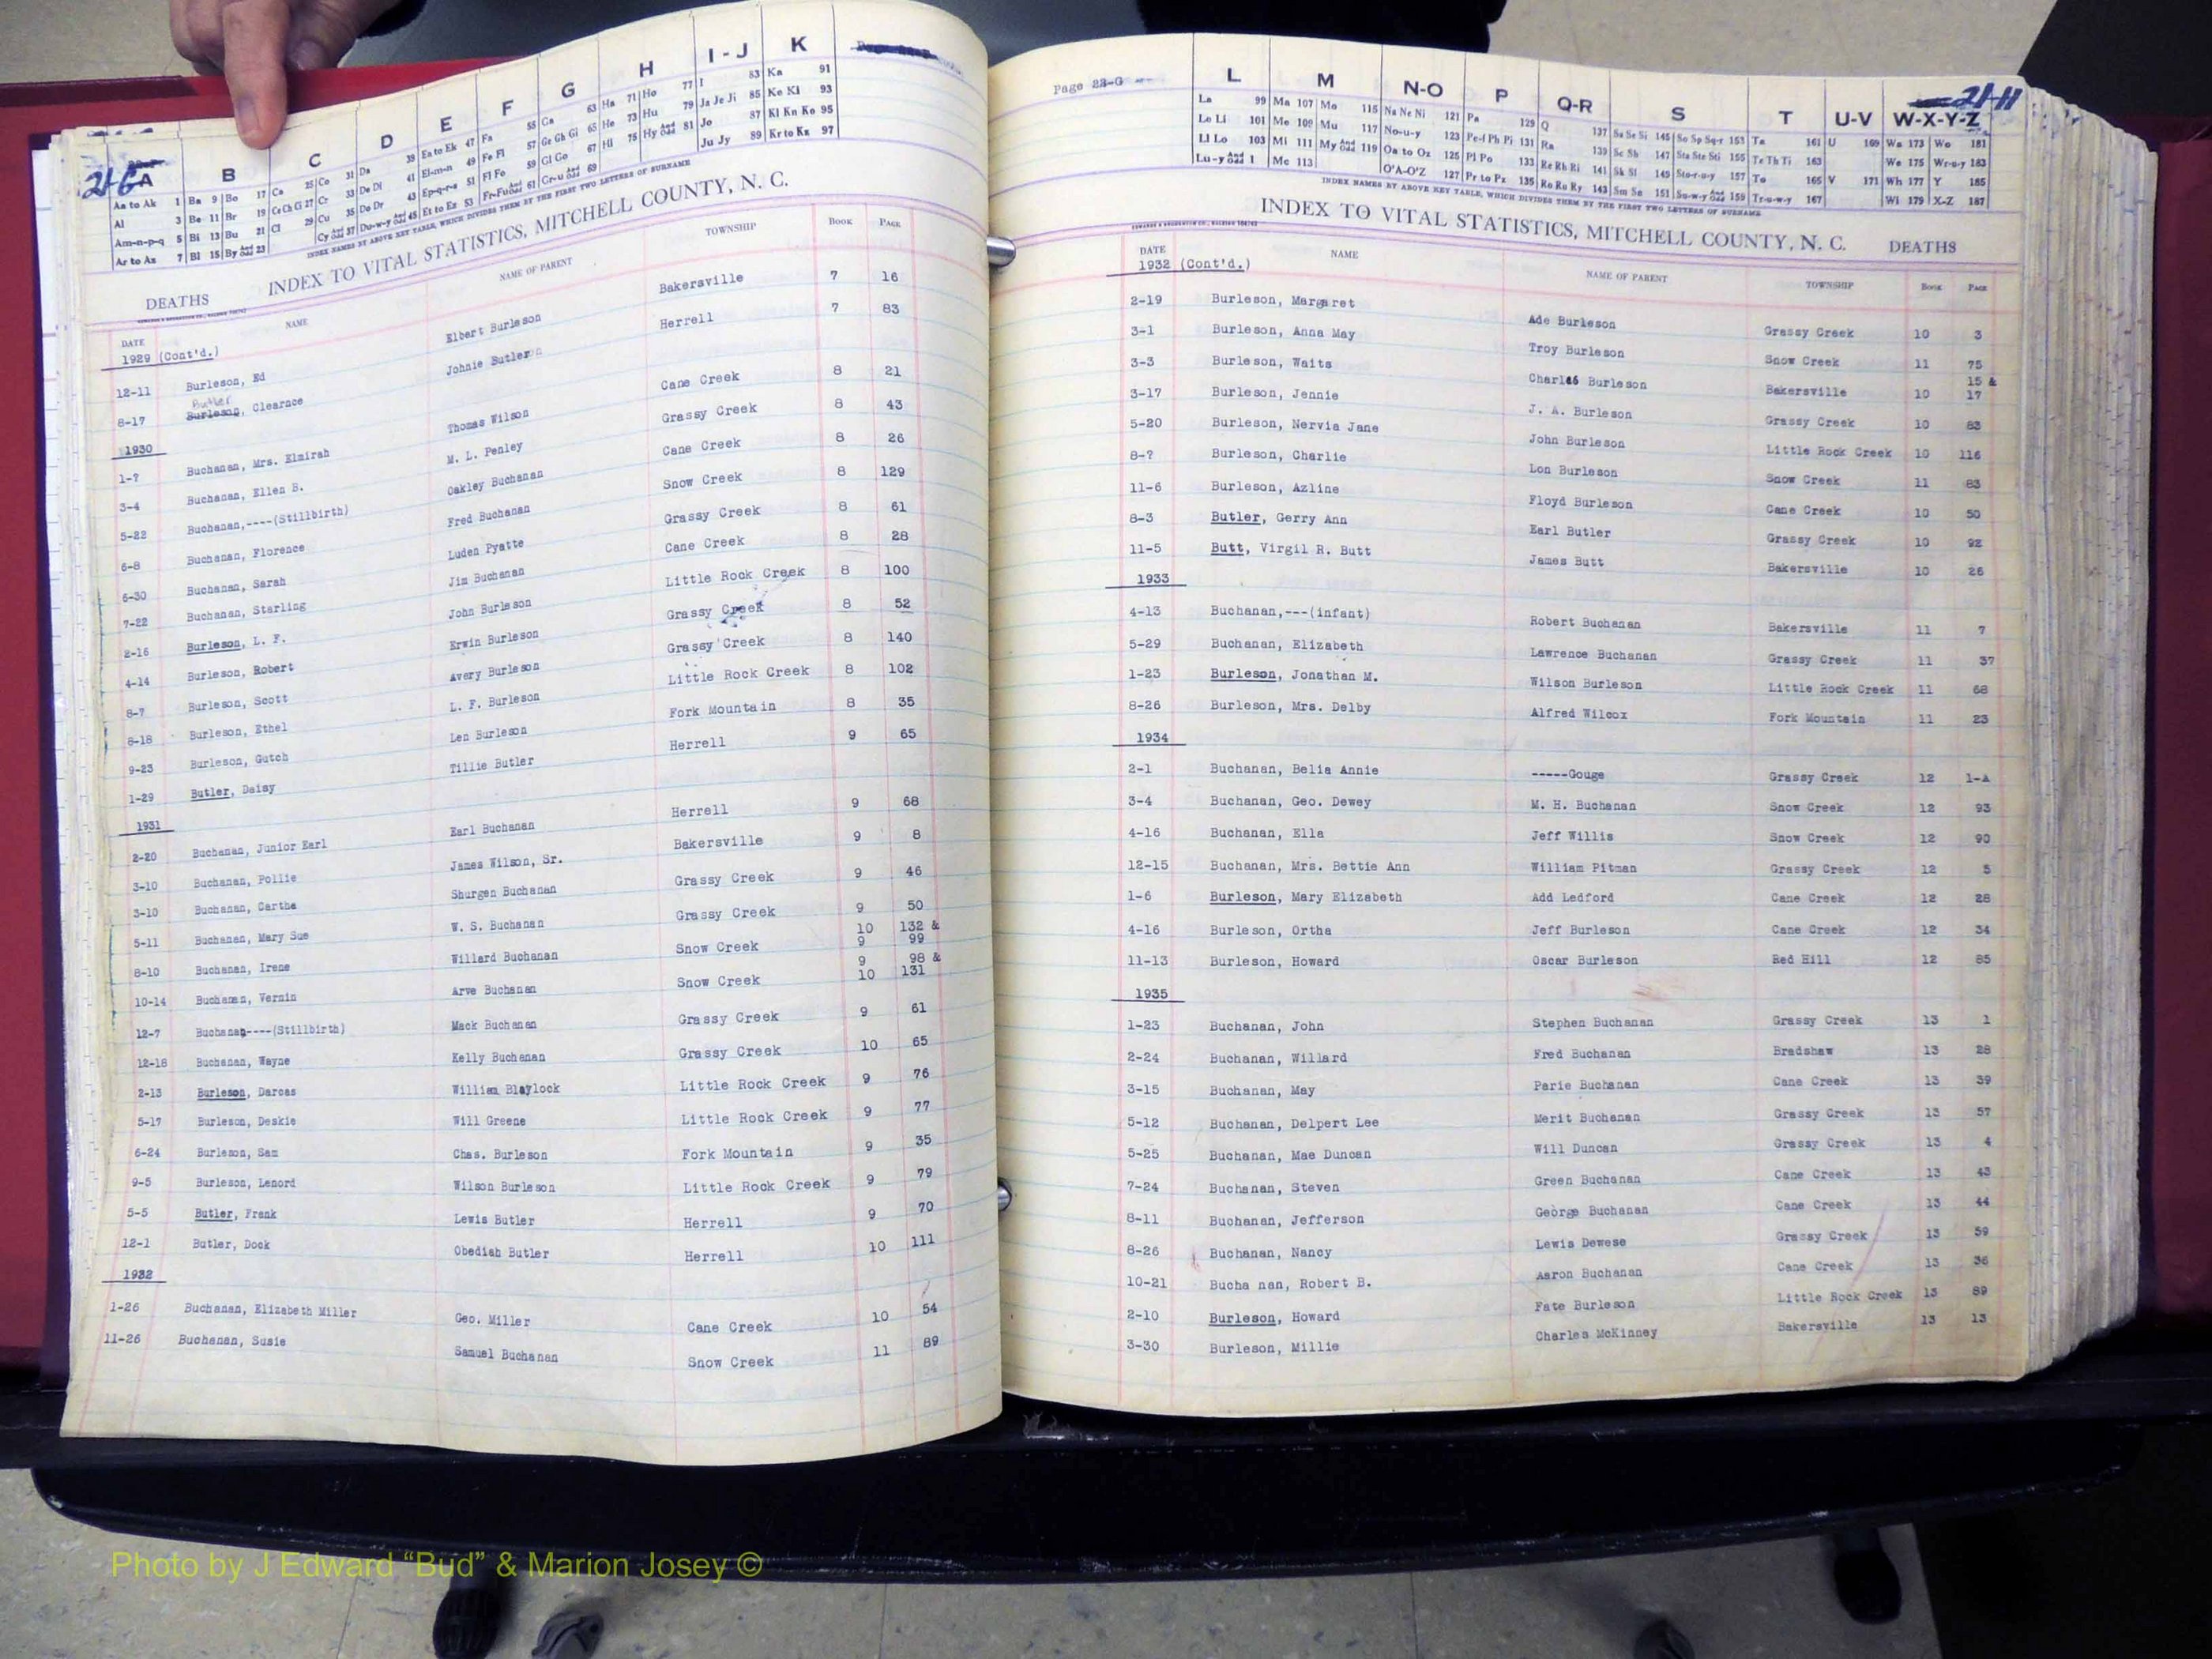 21-G
A B C D E F G H I-J K
Aa to Ak 1 Ba 9 Bo 17 Ca 25 Co 31 Da 39 Ea to Ek 47 Fa 55 Ga 63 Ha 71 Ho 77 I 83 Ka 91
Al 3 Be 11 Br 19 Ce Ch Ci 27 Cr 33 De Di 41 El-m-n 49 Fe Fi 57 Ge Gh Gi 65 He 73 Hu 79 Ja Je Ji 85 Ke Ki 93
Am-n-p-q 5 Bi 13 Bu 21 Cl 29 Cu 35 Do Dr 43 Ep-q-r-s 51 Fl Fo 59 Gl Go 67 Hi 75 Hy And Odd 81 Jo 87 Kl Kn Ko 95
Ar to Az 7 Bl 15 By And Odd 23 Cy And Odd 37 Du-w-y And Odd 45 Et to Ez 53 Fr-Fu And Odd 61 Gr-u And Odd 69 Ju Jy 89 Kr to Kz 97
INDEX NAMES BY ABOVE KEY TABLE, WHICH DIVIDES THEM BY THE FIRST TWO LETTERS OF SURNAME
DEATHS INDEX TO VITAL STATISTICS, MITCHELL COUNTY, N. C.
DATE NAME NAME OF PARENT TOWNSHIP BOOK PAGE
1929 (Cont'd.)
12-11 Burleson, Ed Elbert Burleson Bakersville 7 16
Butler
8-17 Burleson, Clearnce Johnie Butler Herrell 7 83
1930
1-7 Buchanan, Mrs. Elmirah Thomas Wilson Cane Creek 8 21
3-4 Buchanan, Ellen B. M. L. Penley Grassy Creek 8 43
5-22 Buchanan,----(Stillbirth) Oakley Buchanan Cane Creek 8 26
6-8 Buchanan, Florence Fred Buchanan Snow Creek 8 129
6-30 Buchanan, Sarah Luden Pyatte Grassy Creek 8 61
7-22 Buchanan, Starling Jim Buchanan Cane Creek 8 28
2-16 Burleson, L. F. John Burleson Little Rock Creek 8 100
4-14 Burleson, Robert Erwin Burleson Grassy Creek 8 52
8-7 Burleson, Scott Avery Burleson Grassy Creek 8 140
8-18 Burleson, Ethel L. F. Burleson Little Rock Creek 8 102
9-23 Burleson, Gutch Len Burleson Fork Mountain 8 35
1-29 Butler, Daisy Tillie Butler Herrell 9 65
1931
2-20 Buchanan, Junior Earl Earl Buchanan Herrell 9 68
3-10 Buchanan, Pollie James Wilson, Sr. Bakersville 9 8
3-10 Buchanan, Cartha Shurgen Buchanan Grassy Creek 9 46
5-11 Buchanan, Mary Sue W. S. Buchanan Grassy Creek 9 50
10 132 &
8-10 Buchanan, Irene Willard Buchanan Snow Creek 9 99
9 98 &
10-14 Buchanan, Vernin Arve Buchanan Snow Creek 10 131
12-7 Buchanan----(Stillbirth) Mack Buchanan Grassy Creek 9 61
12-18 Buchanan, Wayne Kelly Buchanan Grassy Creek 10 65
2-13 Burleson, Darcas William Blaylock Little Rock Creek 9 76
5-17 Burleson, Deskie Will Greene Little Rock Creek 9 77
6-24 Burleson, Sam Chas. Burleson Fork Mountain 9 35
9-5 Burleson, Lenord Wilson Burleson Little Rock Creek 9 79
5-5 Butler, Frank Lewis Butler Herrell 9 70
12-1 Butler, Dock Obediah Butler Herrell 10 111
1932
1-26 Buchanan, Elizabeth Miller Geo. Miller Cane Creek 10 54
11-26 Buchanan, Susie Samuel Buchanan Snow Creek 11 89
Page 22-G 21-H
L M N-O P Q-R S T U-V W-X-Y-Z
La 99 Ma 107 Mo 115 Na Ne Ni 121 Pa 129 Q 137 Sa Se Si 145 So Sp Sq-r 153 Ta 161 U 169 Wa 173 Wo 181
Le Li 101 Mc 109 Mu 117 No-u-y 123 Pe-f Ph Pi 131 Ra 139 Sc Sh 147 Sta Ste Sti 155 Te Th Ti 163 We 175 Wr-u-y 183
Ll Lo 103 Mi 111 My And Odd 119 Oa to Oz 125 Pl Po 133 Re Rh Ri 141 Sk Sl 149 Sto-r-u-y 157 To 165 V 171 Wh 177 Y 185
Lu-y And Odd 1 Me 113 O'A-O'Z 127 Pr to Pz 135 Ro Ru Ry 143 Sm Sn 151 Su-w-y And Odd 159 Tr-u-w-y 167 Wi 179 X-Z 187
INDEX NAMES BY ABOVE KEY TABLE, WHICH DIVIDES THEM BY THE FIRST TWO LETTERS OF SURNAME
INDEX TO VITAL STATISTICS, MITCHELL COUNTY, N. C. DEATHS
DATE NAME NAME OF PARENT TOWNSHIP BOOK PAGE
1932 (Cont'd.)
2-19 Burleson, Margaret Ade Burleson Grassy Creek 10 3
3-1 Burleson, Anna May Troy Burleson Snow Creek 11 75
15 &
3-3 Burleson, Waits Charles Burleson Bakersville 10 17
3-17 Burleson, Jennie J. A. Burleson Grassy Creek 10 83
5-20 Burleson, Nervia Jane John Burleson Little Rock Creek 10 116
8-7 Burleson, Charlie Lon Burleson Snow Creek 11 83
11-6 Burleson, Azline Floyd Burleson Cane Creek 10 50
8-3 Butler, Gerry Ann Earl Butler Grassy Creek 10 92
11-5 Butt, Virgil R. Butt James Butt Bakersville 10 26
1933
4-13 Buchanan,---(infant) Robert Buchanan Bakersville 11 7
5-29 Buchanan, Elizabeth Lawrence Buchanan Grassy Creek 11 37
1-23 Burleson, Jonathan M. Wilson Burleson Little Rock Creek 11 68
8-26 Burleson, Mrs. Delby Alfred Wilcox Fork Mountain 11 23
1934
2-1 Buchanan, Belia Annie -----Gouge Grassy Creek 12 1-A
3-4 Buchanan, Geo. Dewey M. H. Buchanan Snow Creek 12 93
4-16 Buchanan, Ella Jeff Willis Snow Creek 12 90
12-15 Buchanan, Mrs. Bettie Ann William Pitman Grassy Creek 12 5
1-6 Burleson, Mary Elizabeth Add Ledford Cane Creek 12 28
4-16 Burleson, Ortha Jeff Burleson Cane Creek 12 34
11-13 Burleson, Howard Oscar Burleson Red Hill 12 85
1935
1-23 Buchanan, John Stephen Buchanan Grassy Creek 13 1
2-24 Buchanan, Willard Fred Buchanan Bradshaw 13 28
3-15 Buchanan, May Parie Buchanan Cane Creek 13 39
5-12 Buchanan, Delpert Lee Merit Buchanan Grassy Creek 13 57
5-25 Buchanan, Mae Duncan Will Duncan Grassy Creek 13 4
7-24 Buchanan, Steven Green Buchanan Cane Creek 13 43
8-11 Buchanan, Jefferson George Buchanan Cane Creek 13 44
8-26 Buchanan, Nancy Lewis Dewese Grassy Creek 13 59
10-21 Bucha nan, Robert B. Aaron Buchanan Cane Creek 13 36
2-10 Burleson, Howard Fate Burleson Little Rock Creek 13 89
3-30 Burleson, Millie Charles McKinney Bakersville 13 13
Photo by J Edward “Bud” & Marion Josey ©